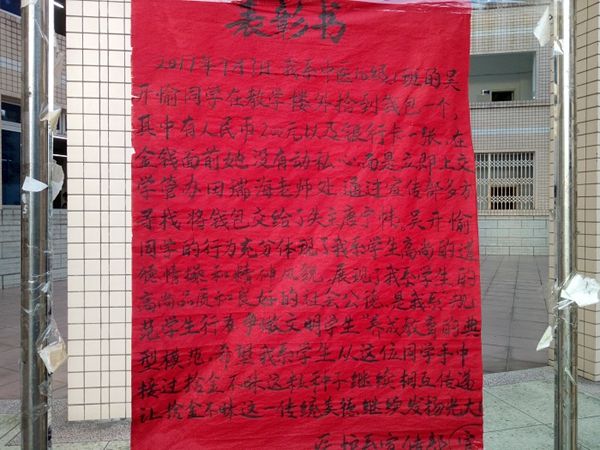 表彰书
2017年9月1日我系中医15级1班的吴
开愉同学在教学楼外捡到钱包一个,
其中有人民币200元以及银行卡一张,在
金钱面前她没有动私心而是立即上交
学管办田瑞海老师处,通过宣传部多方
寻找,将钱包交给了失主唐宁
吴开愉
同学的行为充分体现了我系学生高尚的道
德情操和精神风貌,展现了我系学生的
高尚品质和良好的社会公德,是我系规
范学生行为 争做文明学生 养成教育的典
型模范,希望我系学生从这位同学手中
接过拾金不昧这粒种子继续相互传递
让拾金不昧这一传统美德继续发扬光大!
宣传部